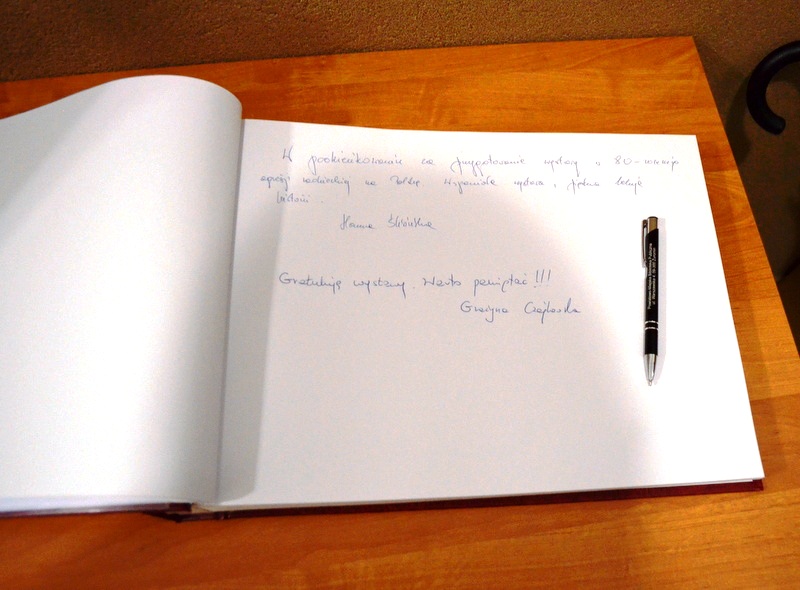 W podziękowaniu za przygotowanie wystawy w 80-rocznicę
agresji radzieckiej na Polskę. Wspaniała wystawa, piękna lekcja
historii.
Hanna
Gratuluję wystawy. Warto pamiętać!!!
Grażyna